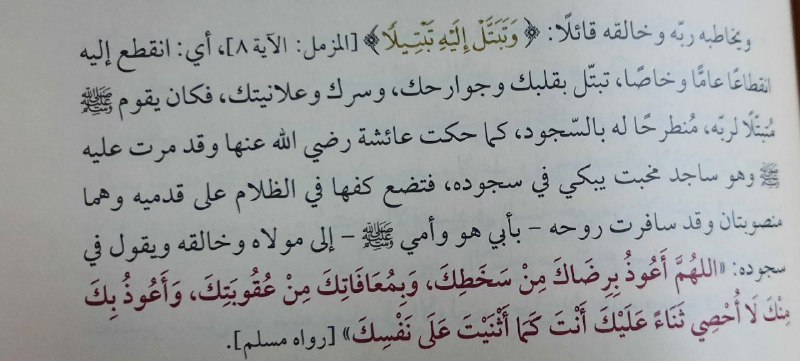 ويخاطبه ربّه وخالقه قائلًا: ﴿وَتَبَتَّلْ إِلَيْهِ تَبْتِيلًا﴾ [المزمل: الآية ٨]، أي: انقطع إليه
انقطاعًا عامًّا وخاصًا، تبتّل بقلبك وجوارحك، وسرك وعلانيتك، فكان يقوم ﷺ
مُتبتّلًا لربّه، مُنطرحًا له بالسّجود، كما حكت عائشة رضي الله عنها وقد مرت عليه
ﷺ وهو ساجد مخبت يبكي في سجوده، فتضع كفها في الظلام على قدميه وهما
منصوبتان وقد سافرت روحه - بأبي هو وأمي ﷺ - إلى مولاه وخالقه ويقول في
سجوده: «اللهُمَّ أَعُوذُ بِرِضَاكَ مِنْ سَخَطِكَ، وَبِمُعَافَاتِكَ مِنْ عُقُوبَتِكَ، وَأَعُوذُ بِكَ
مِنْكَ لَا أُحْصِي ثَنَاءً عَلَيْكَ أَنْتَ كَمَا أَثْنَيْتَ عَلَى نَفْسِكَ» [رواه مسلم].